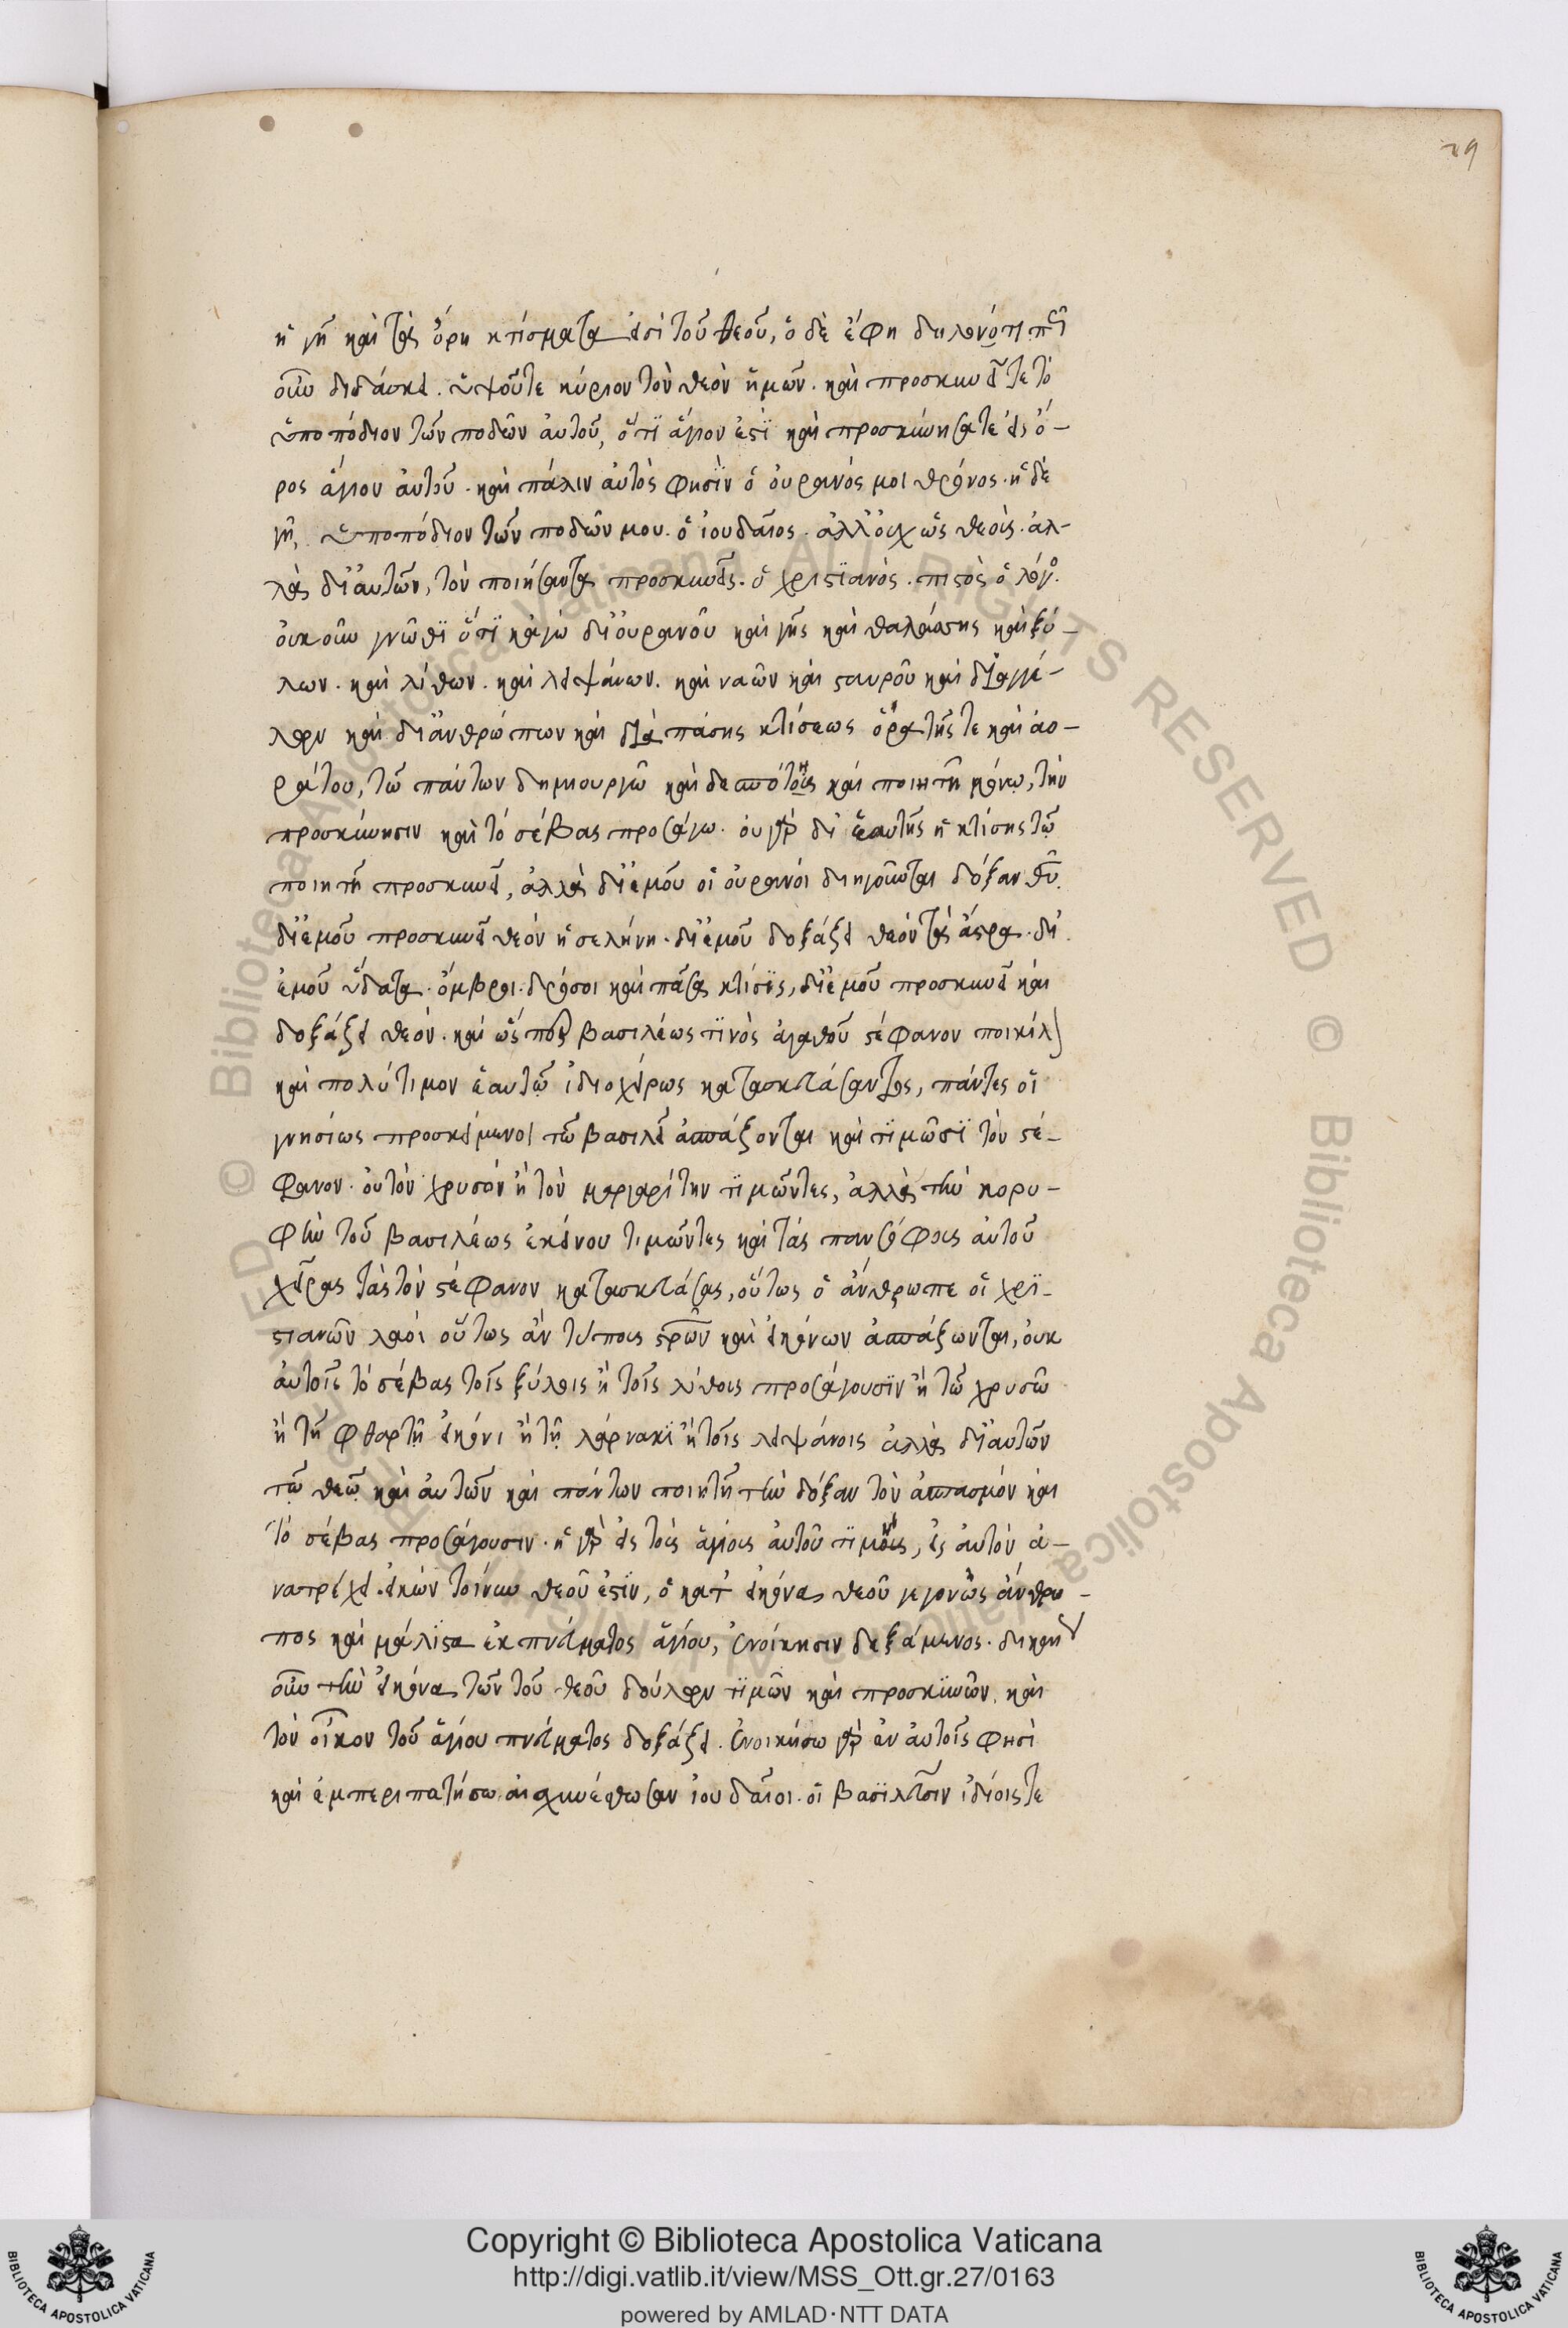 29
ἡ γῆ καὶ τὰ ὄρη κτίσματα εἰσὶ τοῦ θεοῦ, ὁ δὲ ἔφη δηλονότι πῶς
οὖν διδάσκει. ὑψοῦτε κύριον τὸν θεὸν ἡμῶν. καὶ προσκυνεῖτε τὸ
ὑποπόδιον τῶν ποδῶν αὐτοῦ, ὅτι ἅγιον ἐστϊ καὶ προσκυνήσατε εἰς ὄ-
ρος ἅγιον αὐτοῦ. καὶ πάλιν αὐτὸς φησὶν ὁ οὐρανός μοι θρόνος. ἡ δὲ
γῆ, ὑποπόδιον τῶν ποδῶν μου. ὁ ἰουδαῖος. ἀλλ' οὐχ ὡς θεοὺς. ἀλ-
λὰ δι' αὐτῶν, τὸν ποιήσαντα προσκυνεῖς. ὁ χριστϊανὸς. πιστὸς ὁ λόγο.
οὐκοῦν γνῶθϊ ὅτϊ κἀγὼ δι' οὐρανοῦ καὶ γῆς καὶ θαλάσσης καὶ ξύ-
λων. καὶ λίθων. καὶ λειψάνων. καὶ ναῶν καὶ σταυροῦ καὶ δι' ἀγγέ-
λων καὶ δι' ἀνθρώπων καὶ διὰ πάσης κτίσεως ὁρατῆς τε καὶ ἀο-
ράτου, τῶ πάντων δημιουργῶ καὶ δεσπότη καὶ ποιητῆ μόνω, τὴν
προσκύνησιν καὶ τὸ σέβας προσάγω. οὐ γὰρ δι' ἑαυτῆς ἡ κτίσης τῶ
ποιητῆ προσκυνεῖ, ἀλλὰ δι' ἐμοῦ οἱ οὐρανοὶ διηγοῦνται δόξαν θυ.
δι' ἐμοῦ προσκυνεῖ θεὸν ἡ σελήνη. δι' ἐμοῦ δοξάζει θεὸν τὰ ἄστρα. δι'
ἐμοῦ ὕδατα. ὄμβροι. δρόσοι καὶ πᾶσα κτίσϊς, δι' ἐμοῦ προσκυνεῖ καὶ
δοξάζει θεόν. καὶ ὥς περ βασιλέως τϊνὸς ἀγαθοῦ στέφανον ποικίλ
καὶ πολύτιμον ἑαυτῶ ἰδιοχείρως κατασκευάσαντος, πάντες οἱ
γνησίως προσκείμενοι τῶ βασιλεῖ ἀσπάζονται καὶ τϊμῶσϊ τὸν στέ-
φανον. οὐ τὸν χρυσόν ἢ τὸν μαργαρίτην τϊμῶντες, ἀλλὰ τὴν κορυ-
φὴν τοῦ βασιλέως ἐκείνου τιμῶντες καὶ τὰς πανσόφους αὐτοῦ
χεῖρας τὰς τὸν στέφανον κατασκευάσας, οὕτως ὁ ἄνθρωπε οἱ χρϊ-
στιανῶν λαοὶ οὕτως ἂν τύπους στρῶν καὶ εἰκόνων ἀσπάζωνται, οὐκ
αὐτοῖς τὸ σέβας τοῖς ξύλοις ἢ τοῖς λίθοις προσάγουσϊν ἢ τῶ χρυσῶ
ἢ τῆ φθαρτῆ εἰκόνι ἢ τῆ λάρνακϊ ἢ τοῖς λειψάνοις ἀλλὰ δι' αὐτῶν
τῶ θεῶ καὶ αὐτῶν καὶ πάντων ποιητῆ τὴν δόξαν τὸν ἀσπασμόν καὶ
τὸ σέβας προσάγουσιν. ἡ γὰρ εἰς τοὺς ἁγίους αὐτοῦ τϊμὴ, εἰς αὐτὸν ἀ-
νατρέχει. εἰκὼν τοίνυν θεοῦ ἐστϊν, ὁ κατ' εἰκόνα θεοῦ γεγονὼς ἄνθρω-
πος καὶ μάλϊστα ἐκ πνεύματος ἁγίου, ἐνοίκησιν δεξάμενος. δίκαιον
οὖν τὴν εἰκόνα τῶν τοῦ θεοῦ δούλων τϊμῶν καὶ προσκϋνῶν, καὶ
τὸν οἶκον τοῦ ἁγίου πνεύματος δοξάζει. ἐνοικήσω γὰρ ἐν αὐτοῖς φησὶ
καὶ ἐμπεριπατήσω. αἰσχυνέσθωσαν ἰουδαῖοι. οἱ βασϊλεῦσιν ἰδίοις τε
Copyright © Biblioteca Apostolica Vaticana
http://digi.vatlib.it/view/MSS_Ott.gr.27/0163
powered by AMLAD·NTT DATA